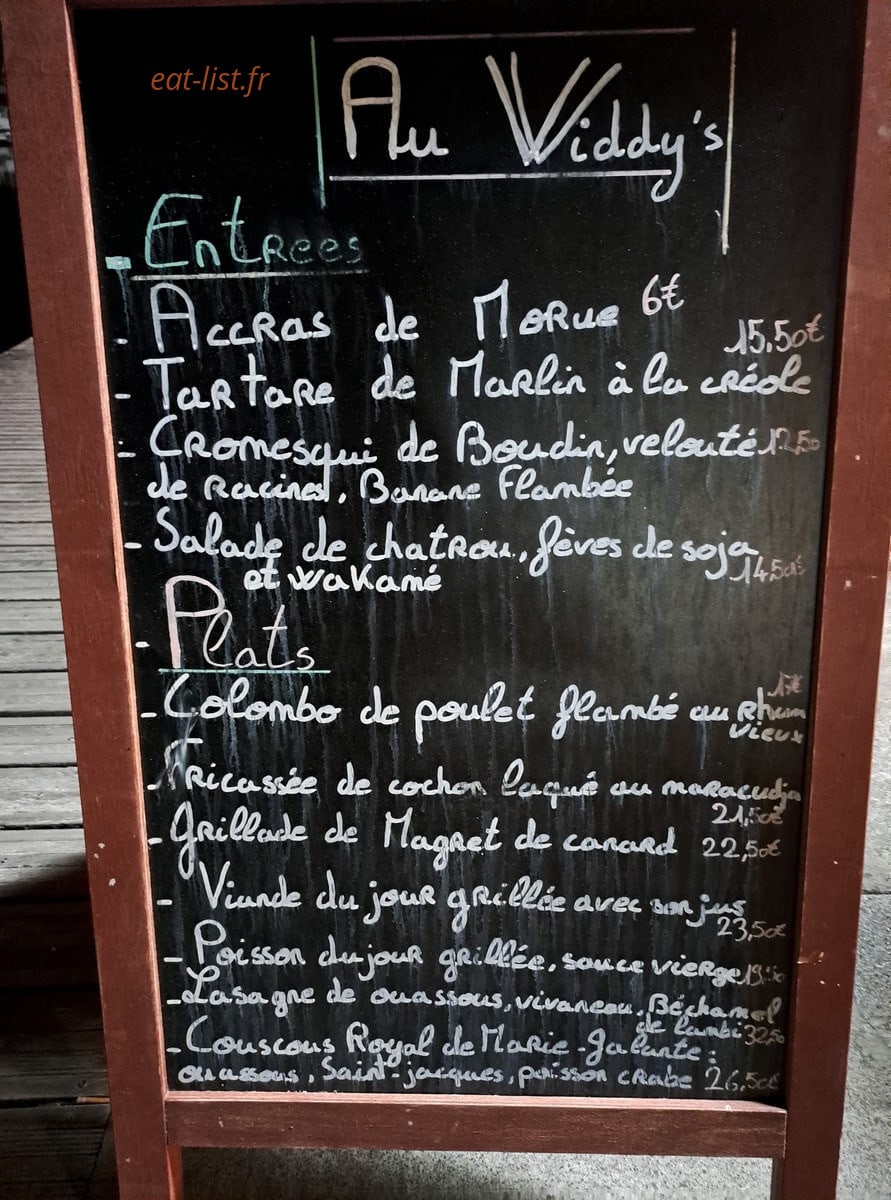 eat-list.fr
Au Widdy's
- Entrees
- Accras de Morue 6€
15,50€
- Tartare de Marlin à la créole
- Cromesqui de Boudin, velouté 12,50
de racines, Banane Flambée
- Salade de chatrou, fèves de soja
et wakamé 14,50€
- Plats
- Colombo de poulet flambé au Rhum
vieux
- Fricassée de cochon laqué au maracudja
21,50€
- Grillade de Magret de canard 22,50€
- Viande du jour grillée avec son jus
23,50€
- Poisson du jour grillée, sauce vierge
- Lasagne de ouassous, vivaneau, Béchamel
de lambi 32,50
- Couscous Royal de Marie-Galante :
ouassous, Saint-jacques, poisson crabe 26,50€